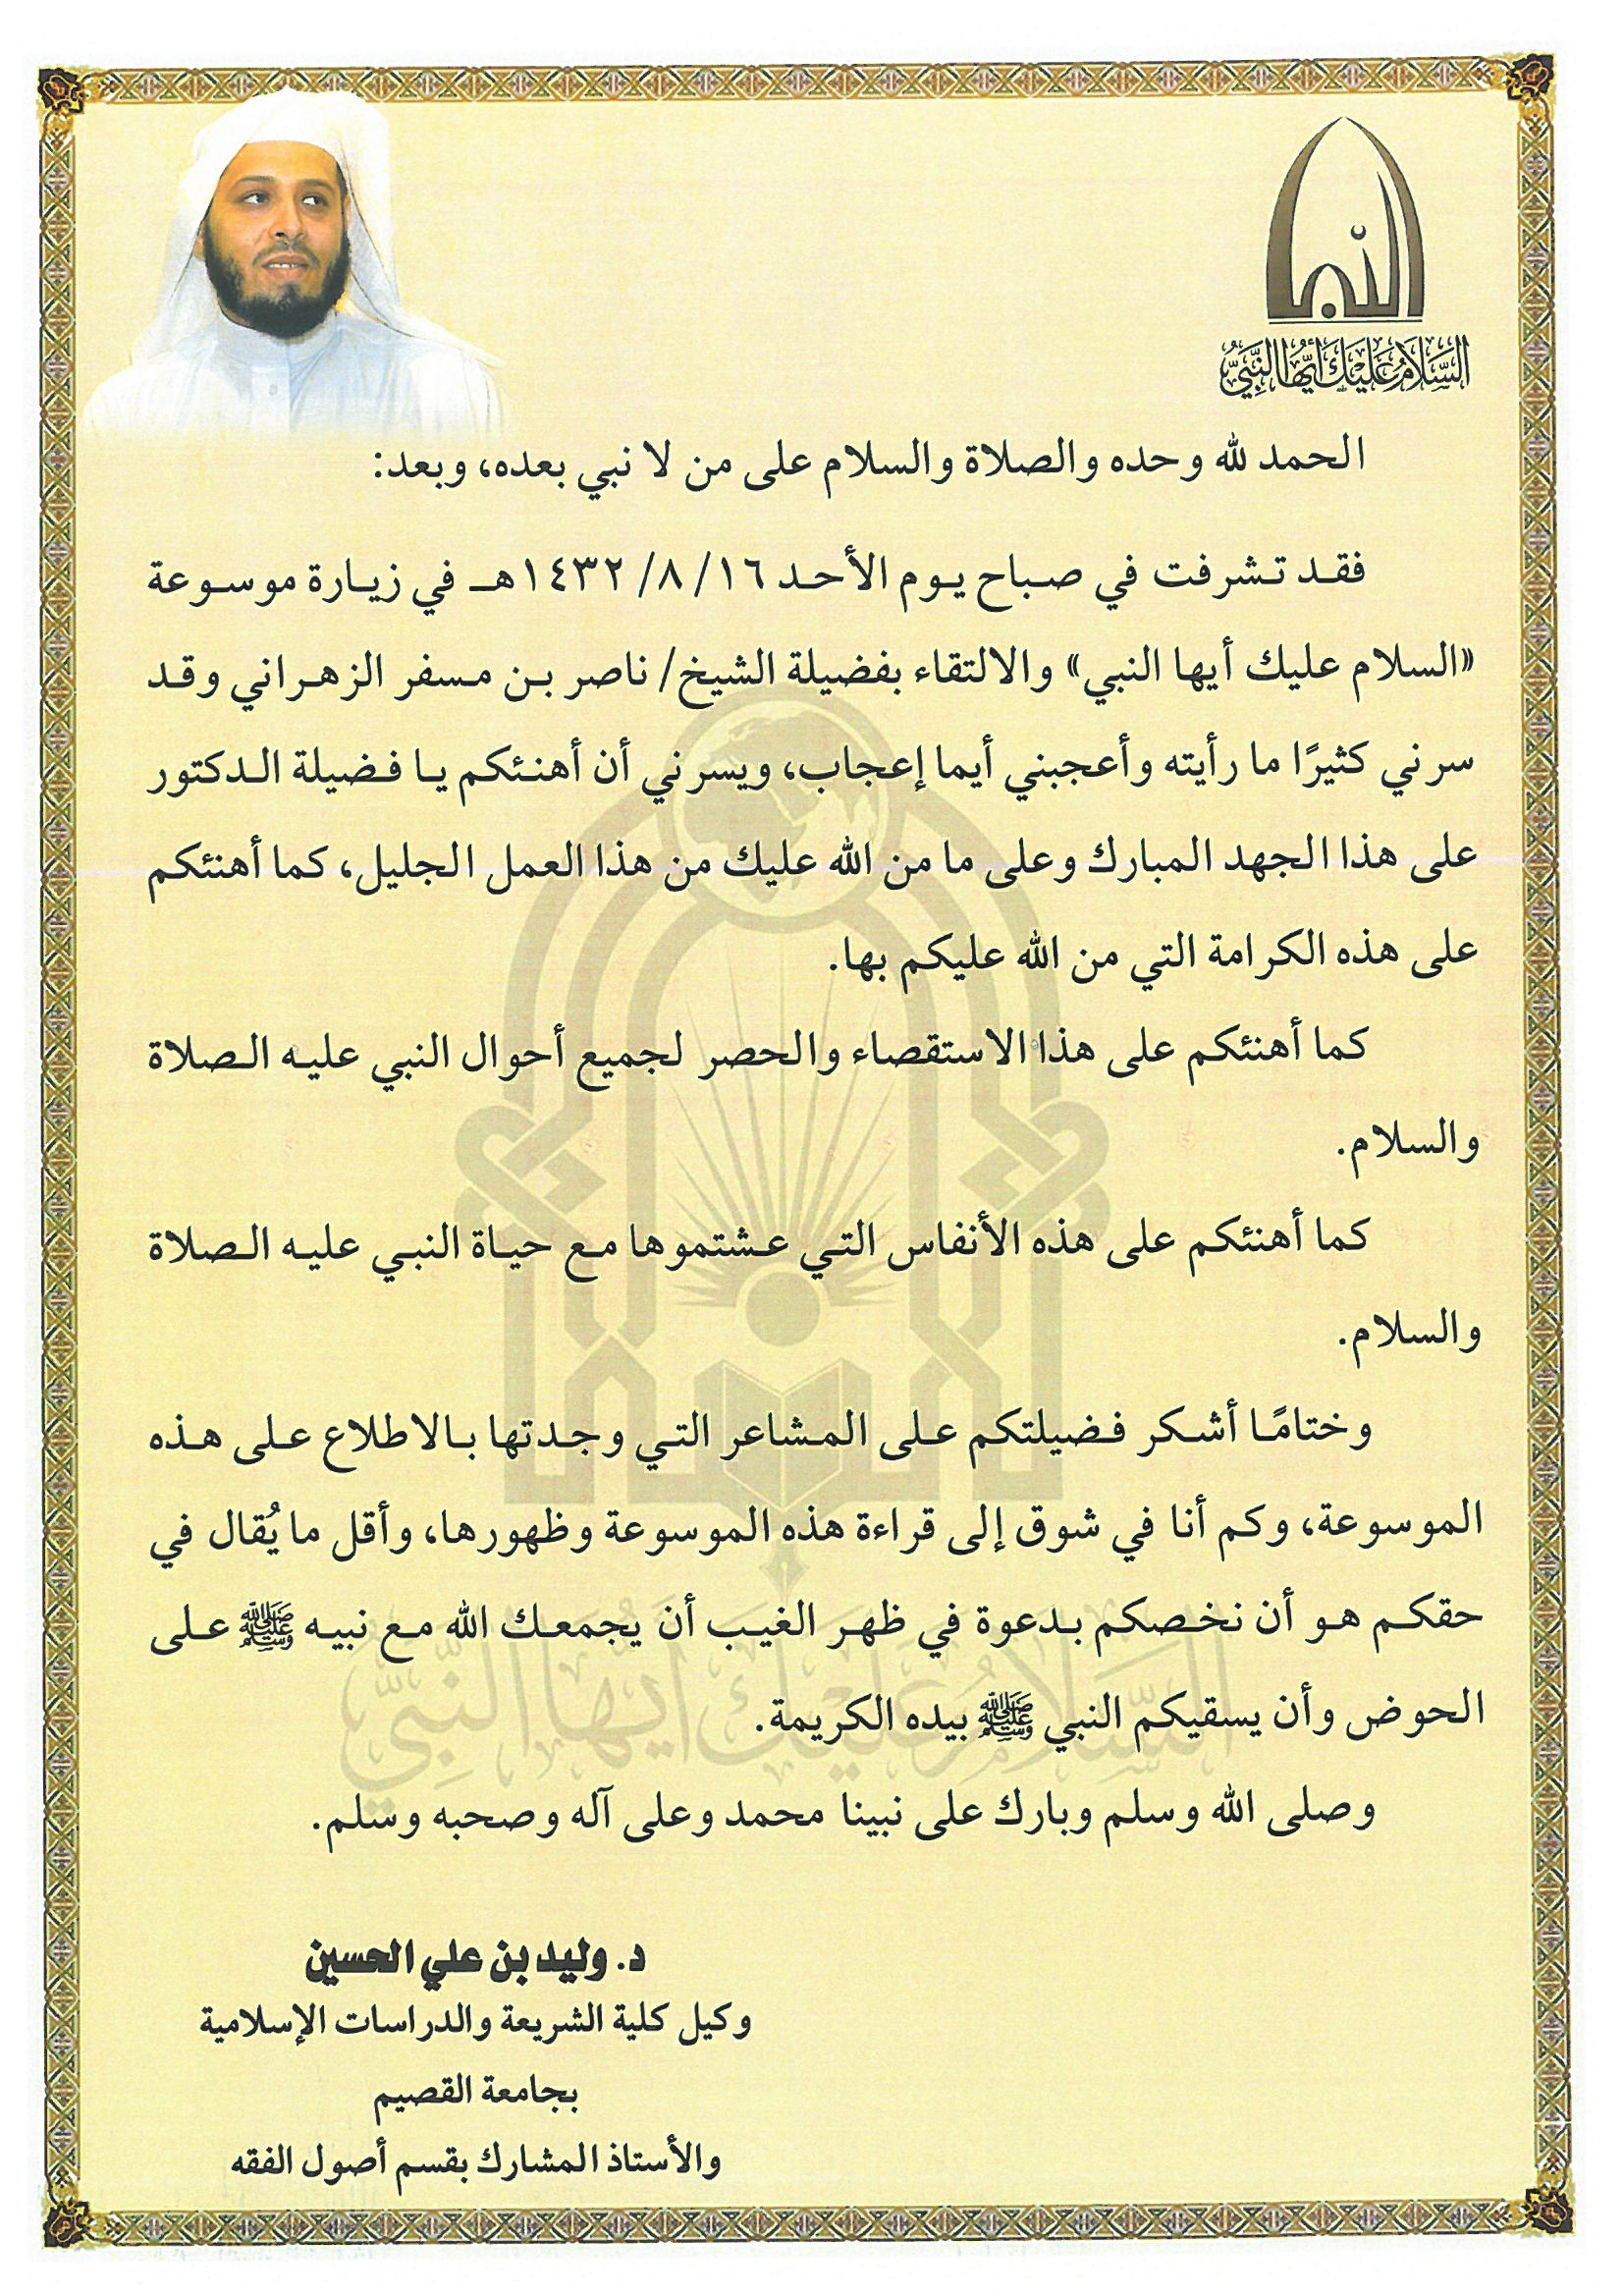 السلام عليك أيها النبي
الحمد لله وحده والصلاة والسلام على من لا نبي بعده، وبعد:
فقد تشرفت في صباح يوم الأحد ١٦/ ٨/ ١٤٣٢هـ في زيارة موسوعة
«السلام عليك أيها النبي» والالتقاء بفضيلة الشيخ/ ناصر بن مسفر الزهراني وقد
سرني كثيرًا ما رأيته وأعجبني أيما إعجاب، ويسرني أن أهنئكم يا فضيلة الدكتور
على هذا الجهد المبارك وعلى ما من الله عليك من هذا العمل الجليل، كما أهنئكم
على هذه الكرامة التي من الله عليكم بها.
كما أهنئكم على هذا الاستقصاء والحصر لجميع أحوال النبي عليه الصلاة
والسلام.
كما أهنئكم على هذه الأنفاس التي عشتموها مع حياة النبي عليه الصلاة
والسلام.
وختامًا أشكر فضيلتكم على المشاعر التي وجدتها بالاطلاع على هذه
الموسوعة، وكم أنا في شوق إلى قراءة هذه الموسوعة وظهورها، وأقل ما يُقال في
حقكم هو أن نخصكم بدعوة في ظهر الغيب أن يجمعك الله مع نبيه ﷺ على
الحوض وأن يسقيكم النبي ﷺ بيده الكريمة.
وصلى الله وسلم وبارك على نبينا محمد وعلى آله وصحبه وسلم.
د. وليد بن علي الحسين
وكيل كلية الشريعة والدراسات الإسلامية
بجامعة القصيم
والأستاذ المشارك بقسم أصول الفقه